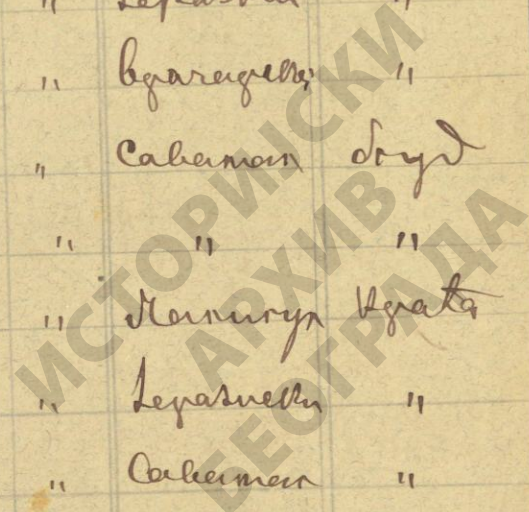 " врачарски "
" Савамал блуд
" " "
" Палилул крађа
" Теразиски "
" Савамал "
ИСТОРИЈСКИ
АРХИВ
БЕОГРАДА